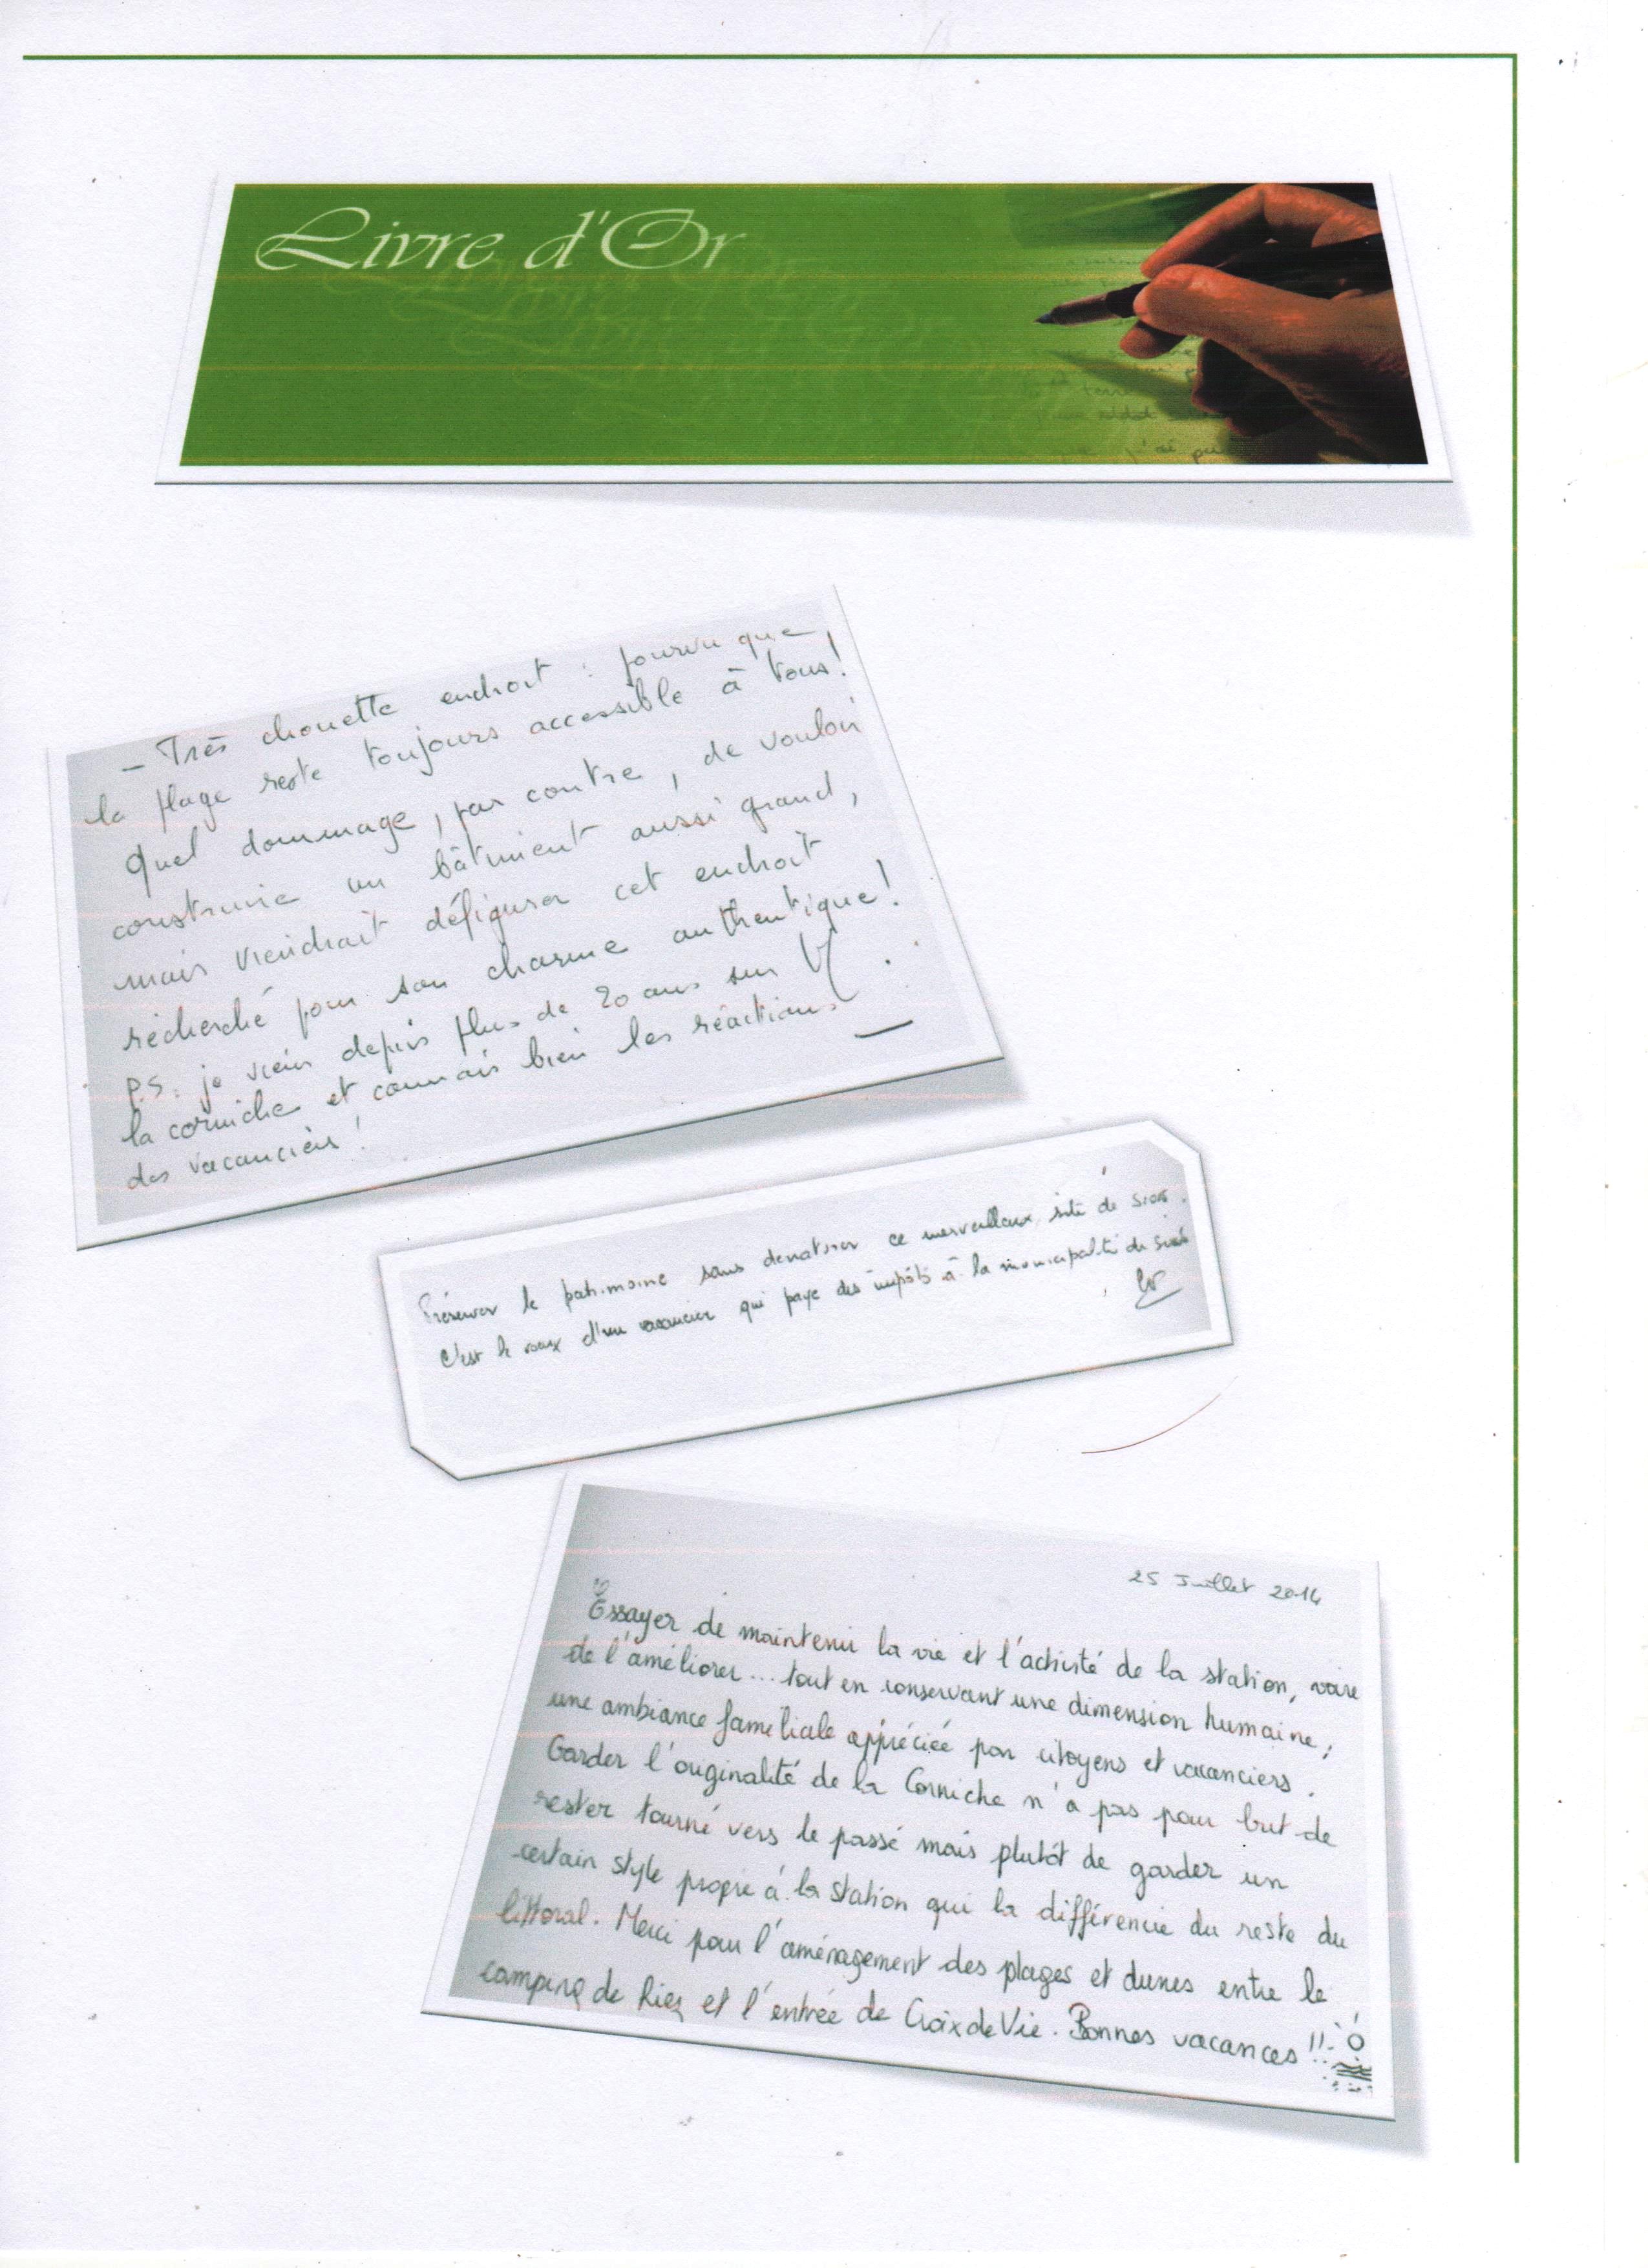 Livre d'Or
– Très chouette endroit : pourvu que
la plage reste toujours accessible à tous !
Quel dommage, par contre, de vouloir
construire un bâtiment aussi grand,
mais viendrait défigurer cet endroit
recherché pour son charme authentique !
P.S. : je viens depuis plus de 20 ans sur
la corniche et connais bien les réactions
des vacanciers !
Préserver le patrimoine sans denaturer ce merveilleux site de Sion.
C'est le voeux d'un vacancier qui paye des impôts à la municipalité de Sion
25 Juillet 2014
Essayer de maintenir la vie et l'activité de la station, voire
de l'améliorer... tout en conservant une dimension humaine,
une ambiance familiale appréciée par citoyens et vacanciers.
Garder l'originalité de la Corniche n'a pas pour but de
rester tourné vers le passé mais plutôt de garder un
certain style propre à la station qui la différencie du reste du
littoral. Merci pour l'aménagement des plages et dunes entre le
camping de Riez et l'entrée de Croix de Vie. Bonnes vacances !!